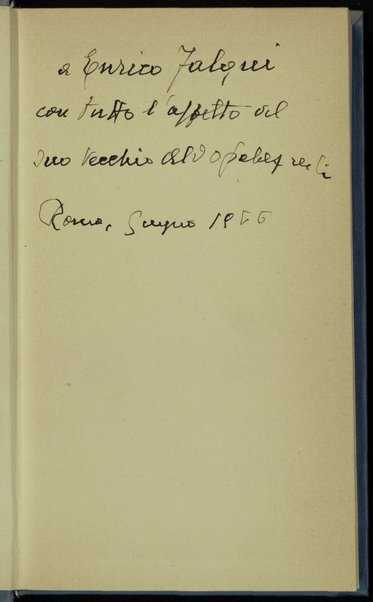 a Enrico Falqui
con tutto l'affetto del
suo vecchio Aldo Palazzeschi
Roma, Giugno 1955